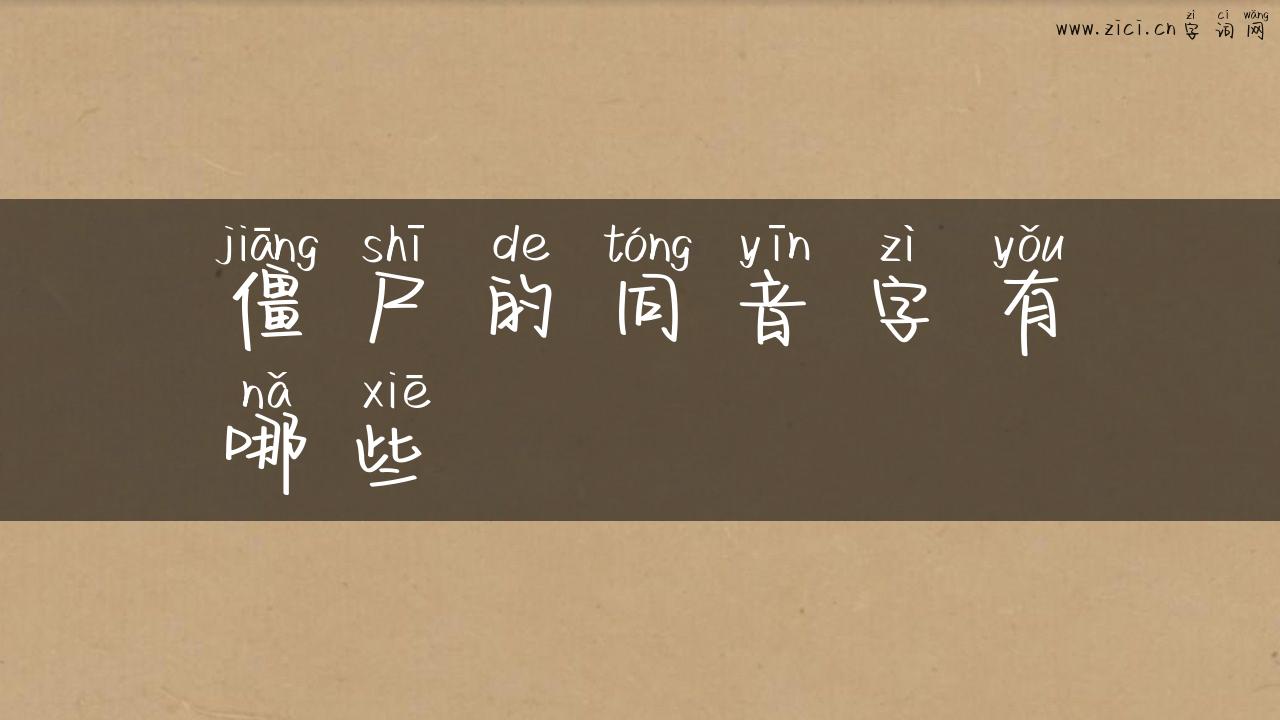 zì cí wǎng
www.zici.cn 字词网
jiāng shī de tóng yīn zì yǒu
僵尸的同音字有
nǎ xiē
哪些